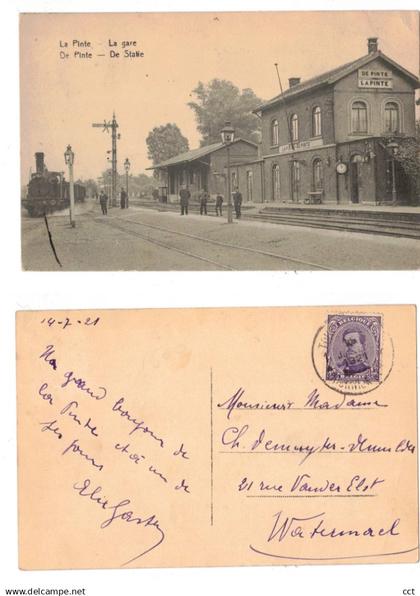 La Pinte - La gare
De Pinte — De Statie
DE PINTE
LA PINTE
14-7-21
Un grand bonjour de
La Pinte et à un de
ses jours
BELGIQUE
BELGIE
Monsieur Madame
Ch.
21 rue Vander Elst
Watermael
www.delcampe.net
cct